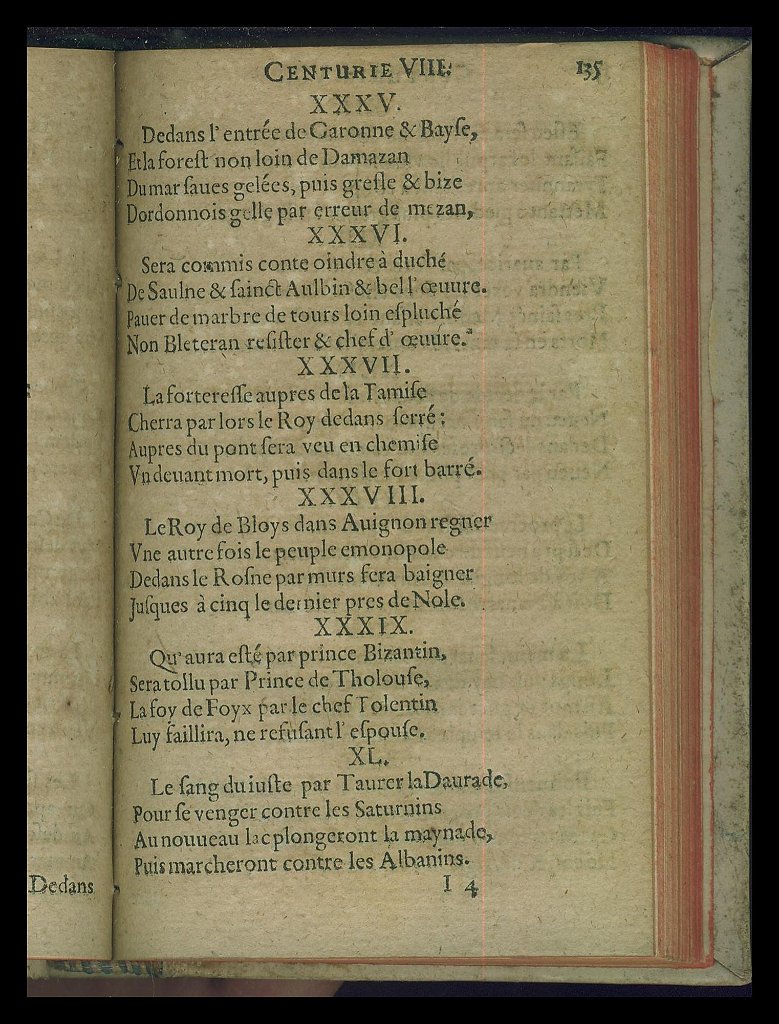 Dedans
CENTURIE VIII. 135
XXXV.
Dedans l'entrée de Garonne & Bayſe,
Et la foreſt non loin de Damazan
Du mar ſaues gelées, puis greſle & bize
Dordonnois gelle par erreur de mezan,
XXXVI.
Sera commis conte oindre à duché
De Saulne & ſainct Aulbin & bell' œuure.
Pauer de marbre de tours loin eſpluché
Non Bleteran reſiſter & chef d' œuure.
XXXVII.
La fortereſſe aupres de la Tamiſe
Cherra par lors le Roy dedans ſerré:
Aupres du pont ſera veu en chemiſe
Vn deuant mort, puis dans le fort barré.
XXXVIII.
Le Roy de Bloys dans Auignon regner
Vne autre fois le peuple emonopole
Dedans le Roſne par murs fera baigner
Juſques à cinq le dernier pres de Nole.
XXXIX.
Qu'aura eſté par prince Bizantin,
Sera tollu par Prince de Tholouſe,
La foy de Foyx par le chef Tolentin
Luy faillira, ne refuſant l' eſpouſe.
XL.
Le ſang du iuſte par Taurer la Daurade,
Pour ſe venger contre les Saturnins
Au nouueau lac plongeront la maynade,
Puis marcheront contre les Albanins.
I 4